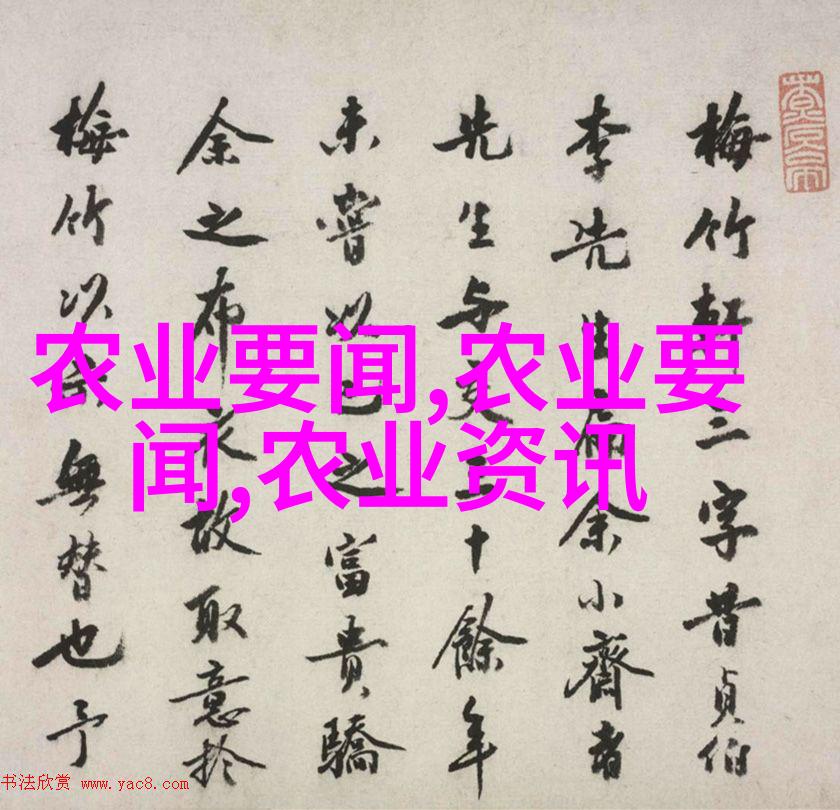 梅竹軒三字昔貞伯
李先生扁余小齋者
先生与交三十餘年
未嘗以己之富貴驕
余之布衣故取意於
梅竹以氏無替也予
农业要闻,农业要
闻,农业资讯
书法欣赏 www.yac8.com